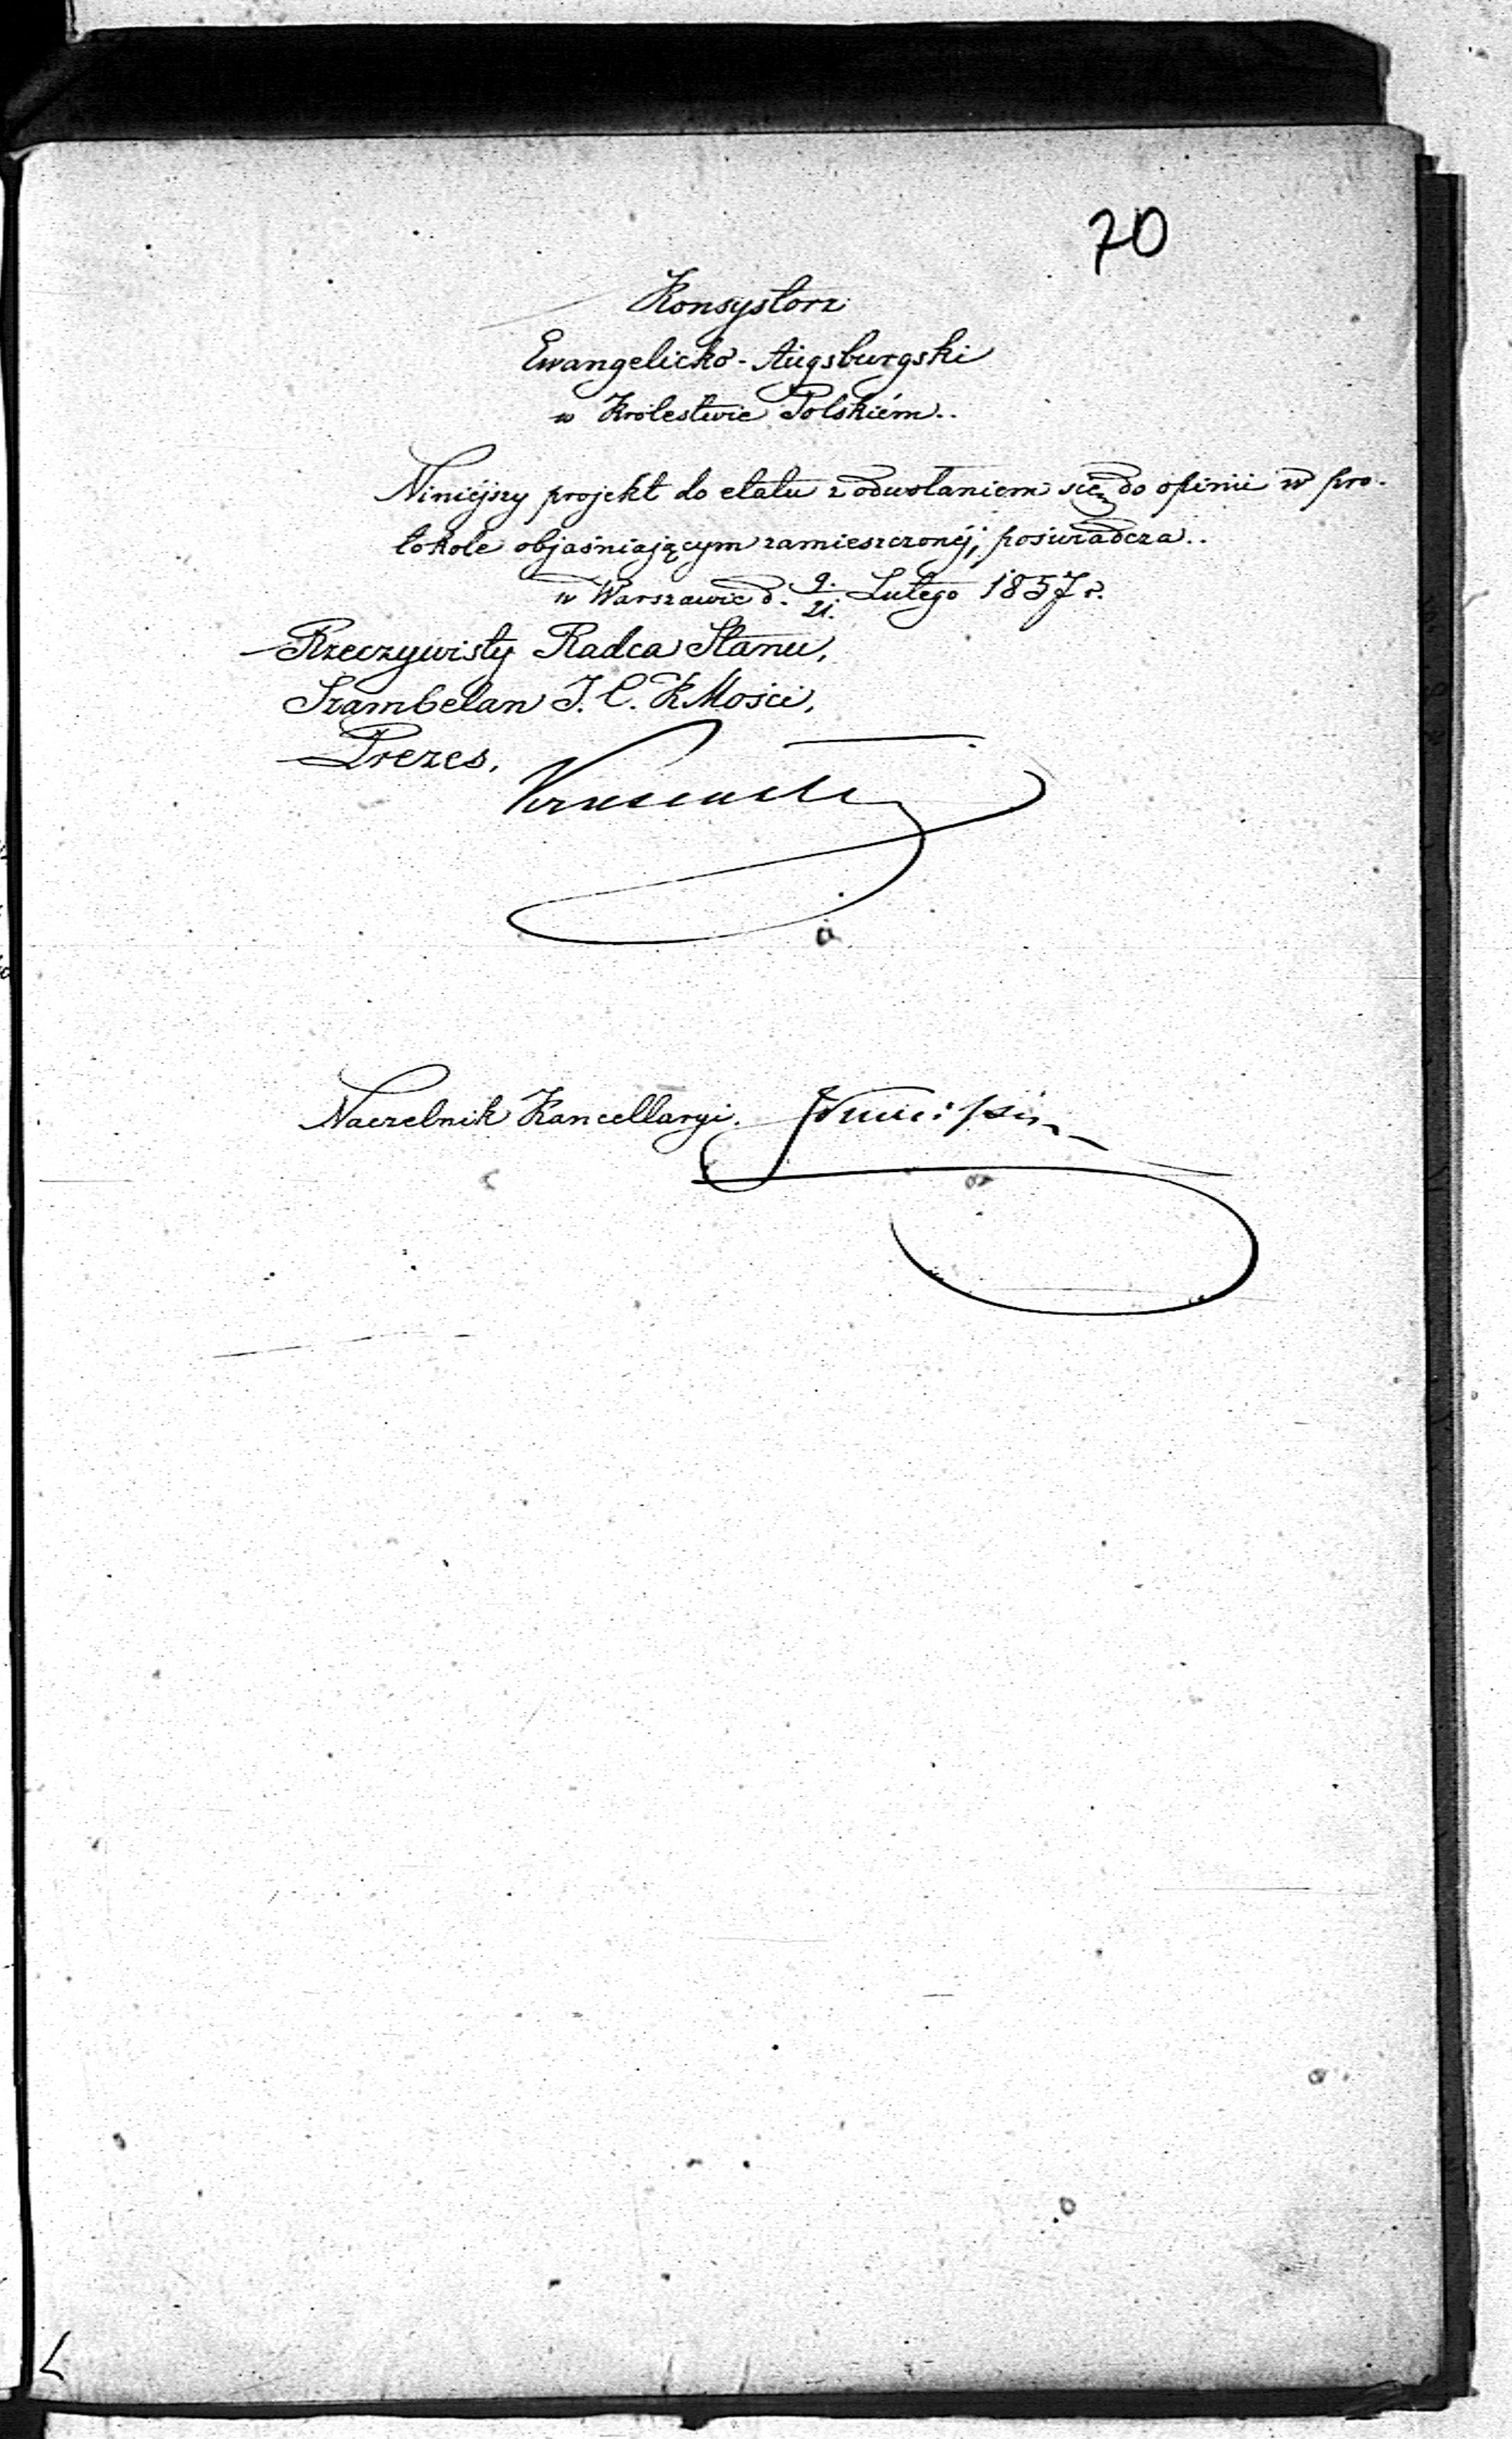 70
Konsystorz
Ewangelicko-Augsburgski
w Królestwie Polskiém.
Niniéjszy projekt do etatu z odwołaniem się do opinii w pro-
tokole objaśniającym zamieszczonéj, poświadcza.
w Warszawie d. 9./21. Lutego 1857 r.
Rzeczywisty Radca Stanu,
Szambelan J. C. K Mości,
Prezes,
Naczelnik Kancellaryi.